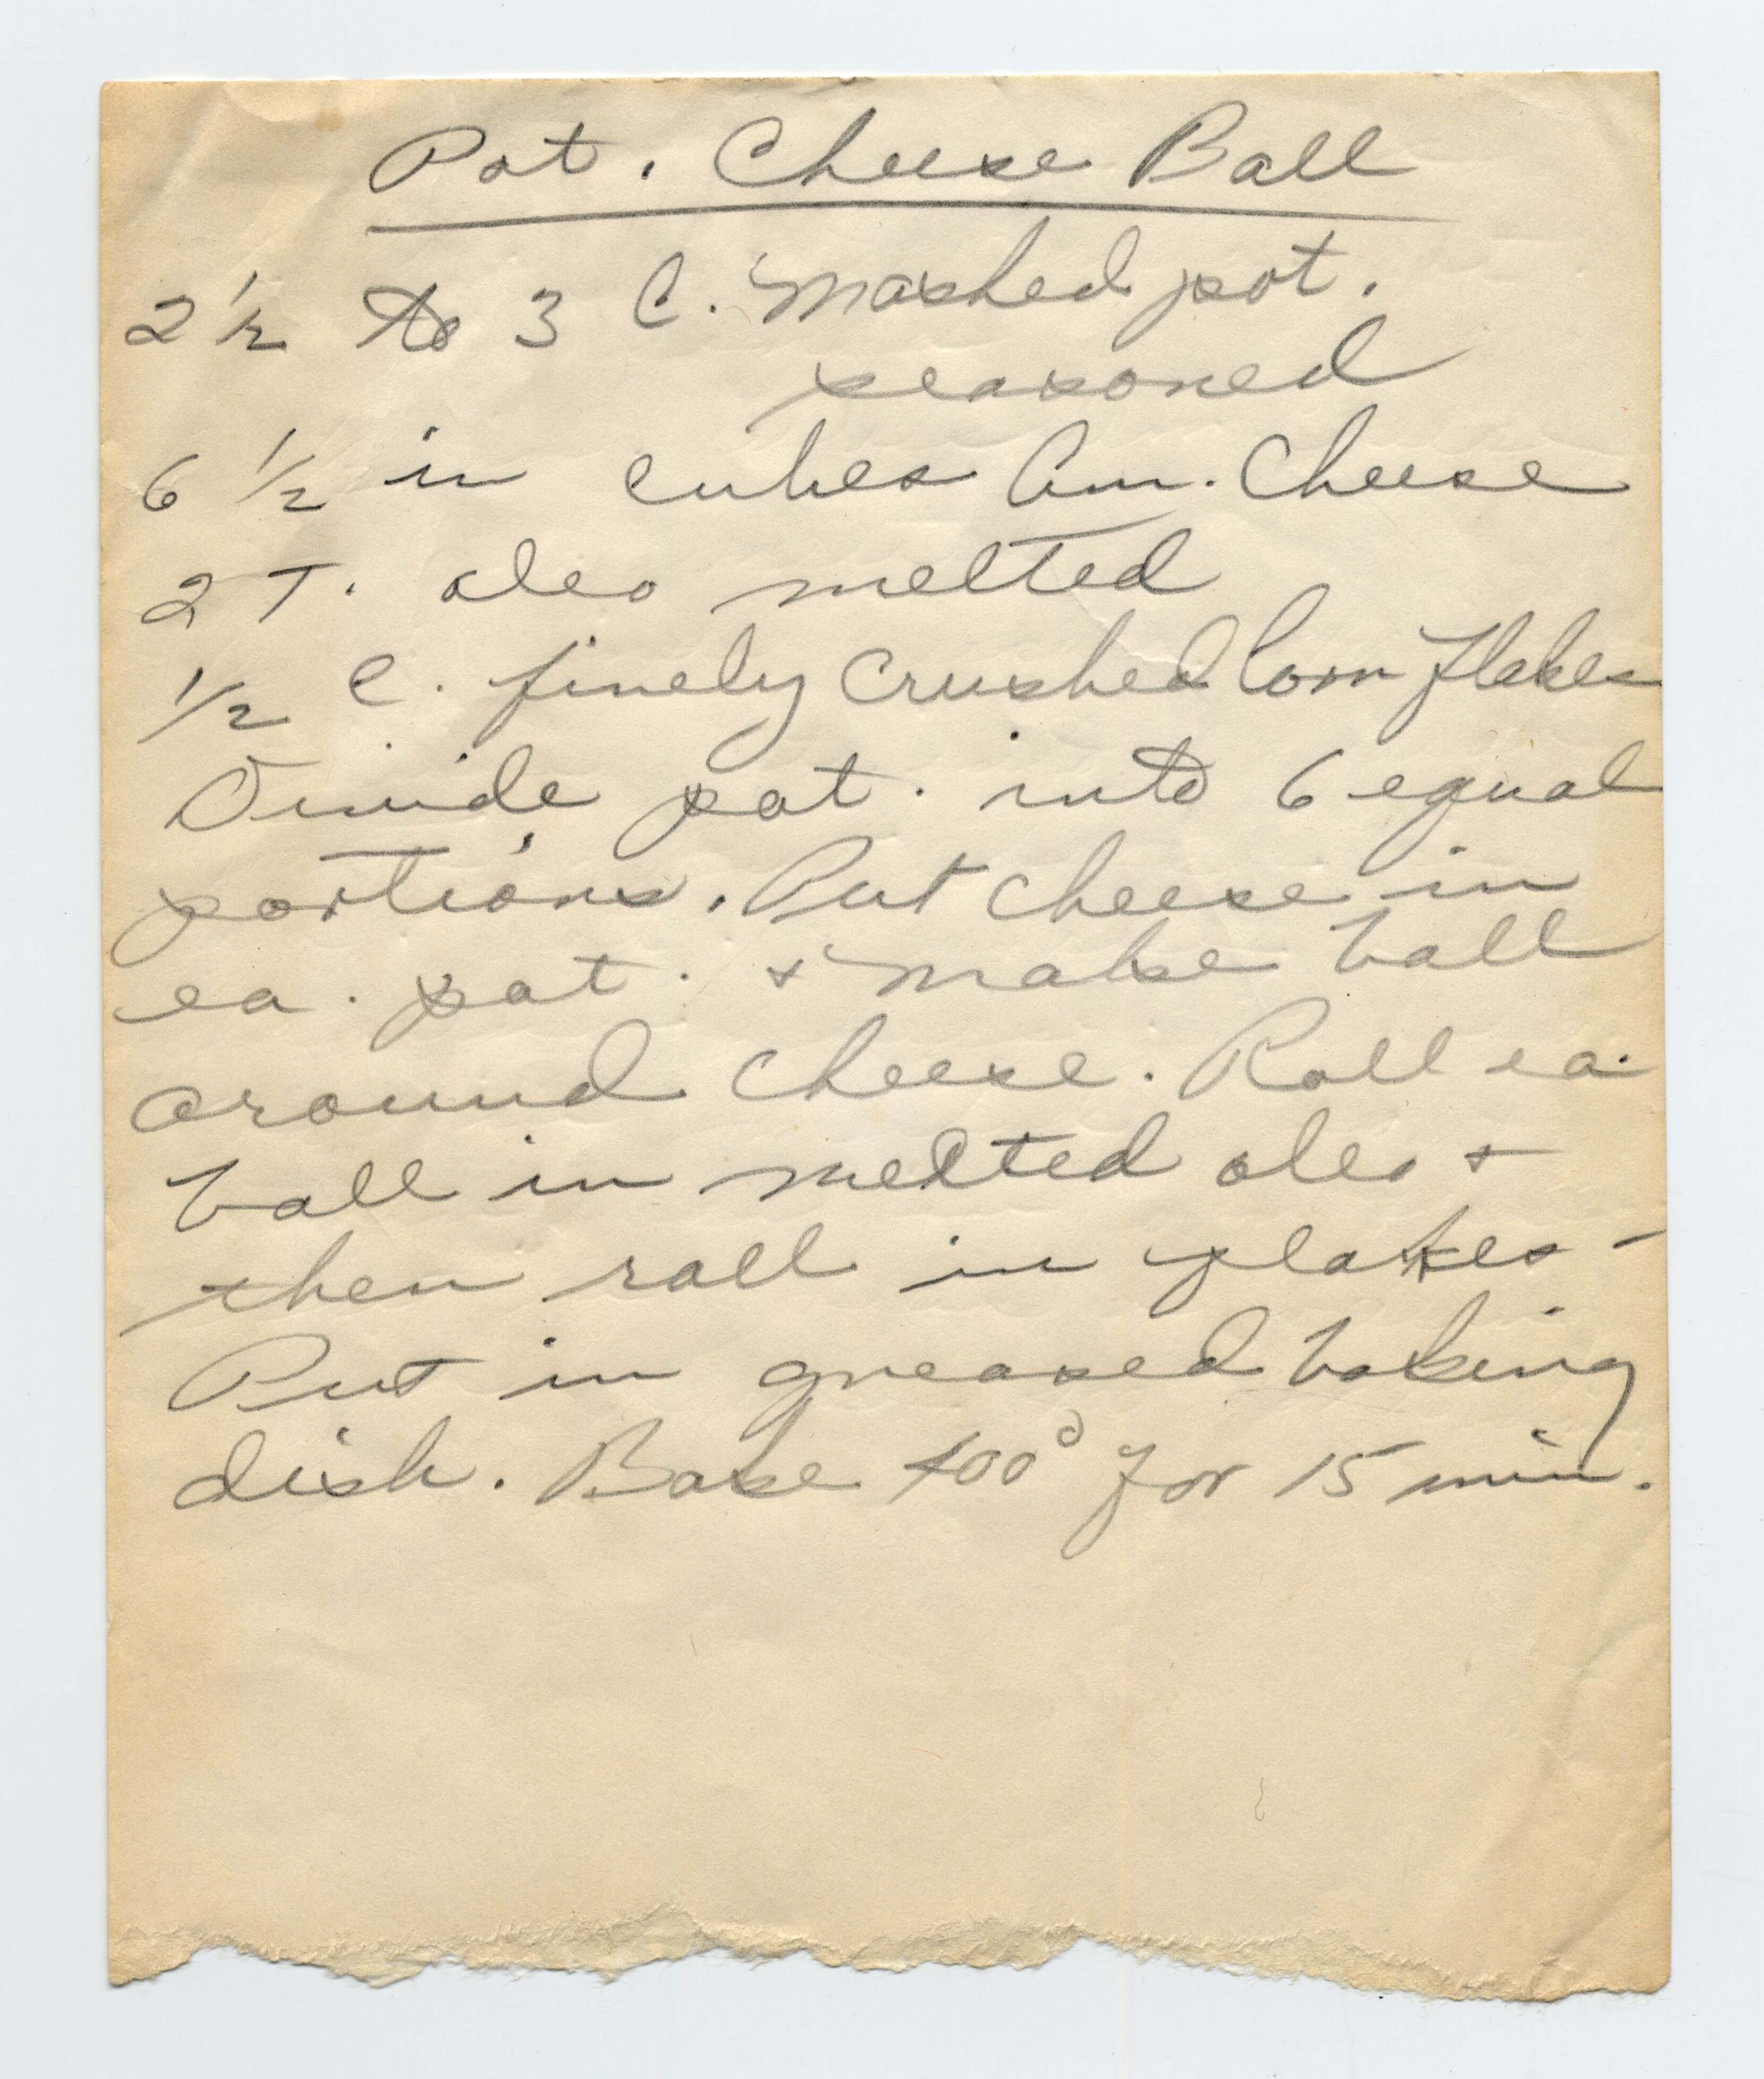 Pot. Cheese Ball
2 1/2 to 3 C. Mashed pot.
seasoned
6 1/2 in cubes Am. Cheese
2 T. oleo melted
1/2 C. finely Crushed Corn Flakes
Divide pot. into 6 equal
portions. Put cheese in
ea. pot. & make ball
around cheese. Roll ea.
ball in melted oleo &
then roll in flakes -
Put in greased baking
dish. Bake 400° for 15 min.